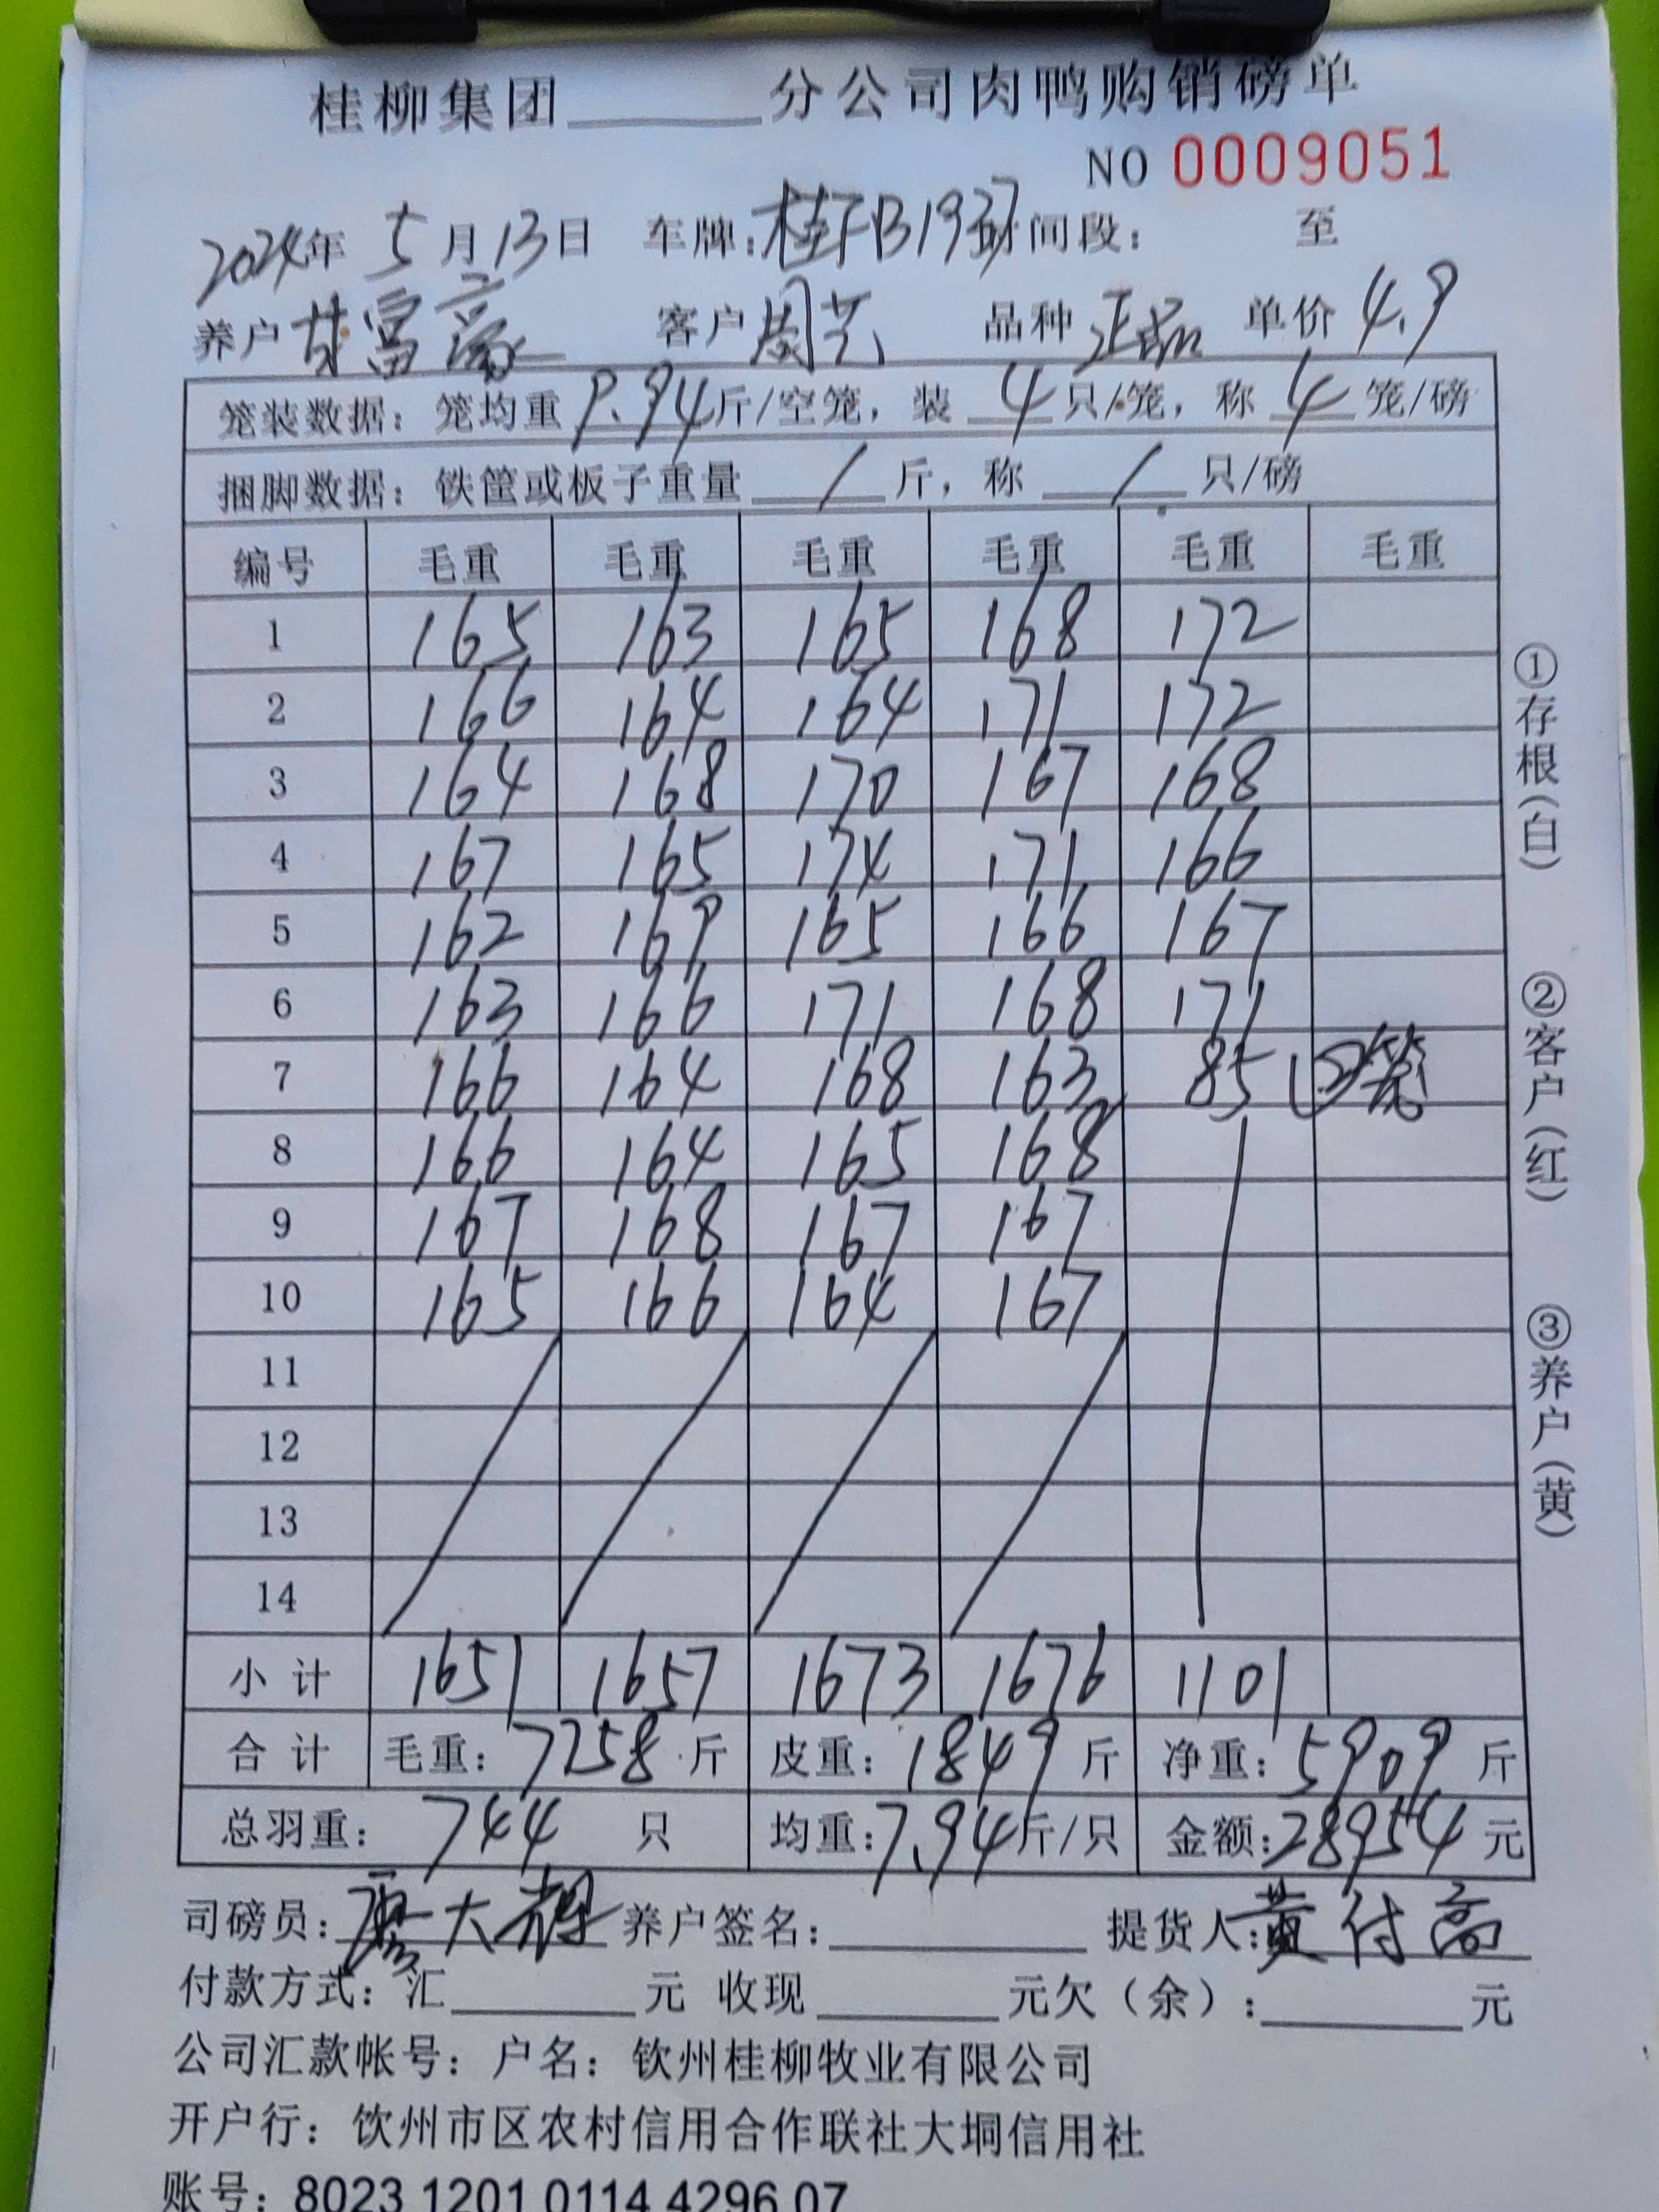 桂柳集团______分公司肉鸭购销磅单
NO 0009051
2024年 5月13日 车牌:桂FB193 间段: 至
养户 甘富豪 客户 周艺 品种 正品 单价 4.9
笼装数据: 笼均重 9.94斤/空笼, 装 4 只/笼, 称 4 笼/磅
捆脚数据: 铁筐或板子重量 / 斤, 称 / 只/磅
编号 毛重 毛重 毛重 毛重 毛重 毛重
1 165 163 165 168 172
2 166 164 164 171 172
3 164 168 170 167 168
4 167 165 174 171 166
5 162 169 165 166 167
6 163 166 171 168 171
7 166 164 168 163 85 (2笼
8 166 164 165 168
9 167 168 167 167
10 165 166 164 167
11
12
13
14
小计 1651 1657 1673 1676 1101
合计 毛重: 7258 斤 皮重: 1849 斤 净重: 5909 斤
总羽重: 744 只 均重: 7.94斤/只 金额: 28954 元
司磅员: 廖大辉 养户签名: 提货人: 黄付高
付款方式: 汇______元 收现______元欠(余):______元
公司汇款帐号: 户名: 钦州桂柳牧业有限公司
开户行: 钦州市区农村信用合作联社大垌信用社
账号: 8023 1201 0114 4296 07
①存根(白)
②客户(红)
③养户(黄)